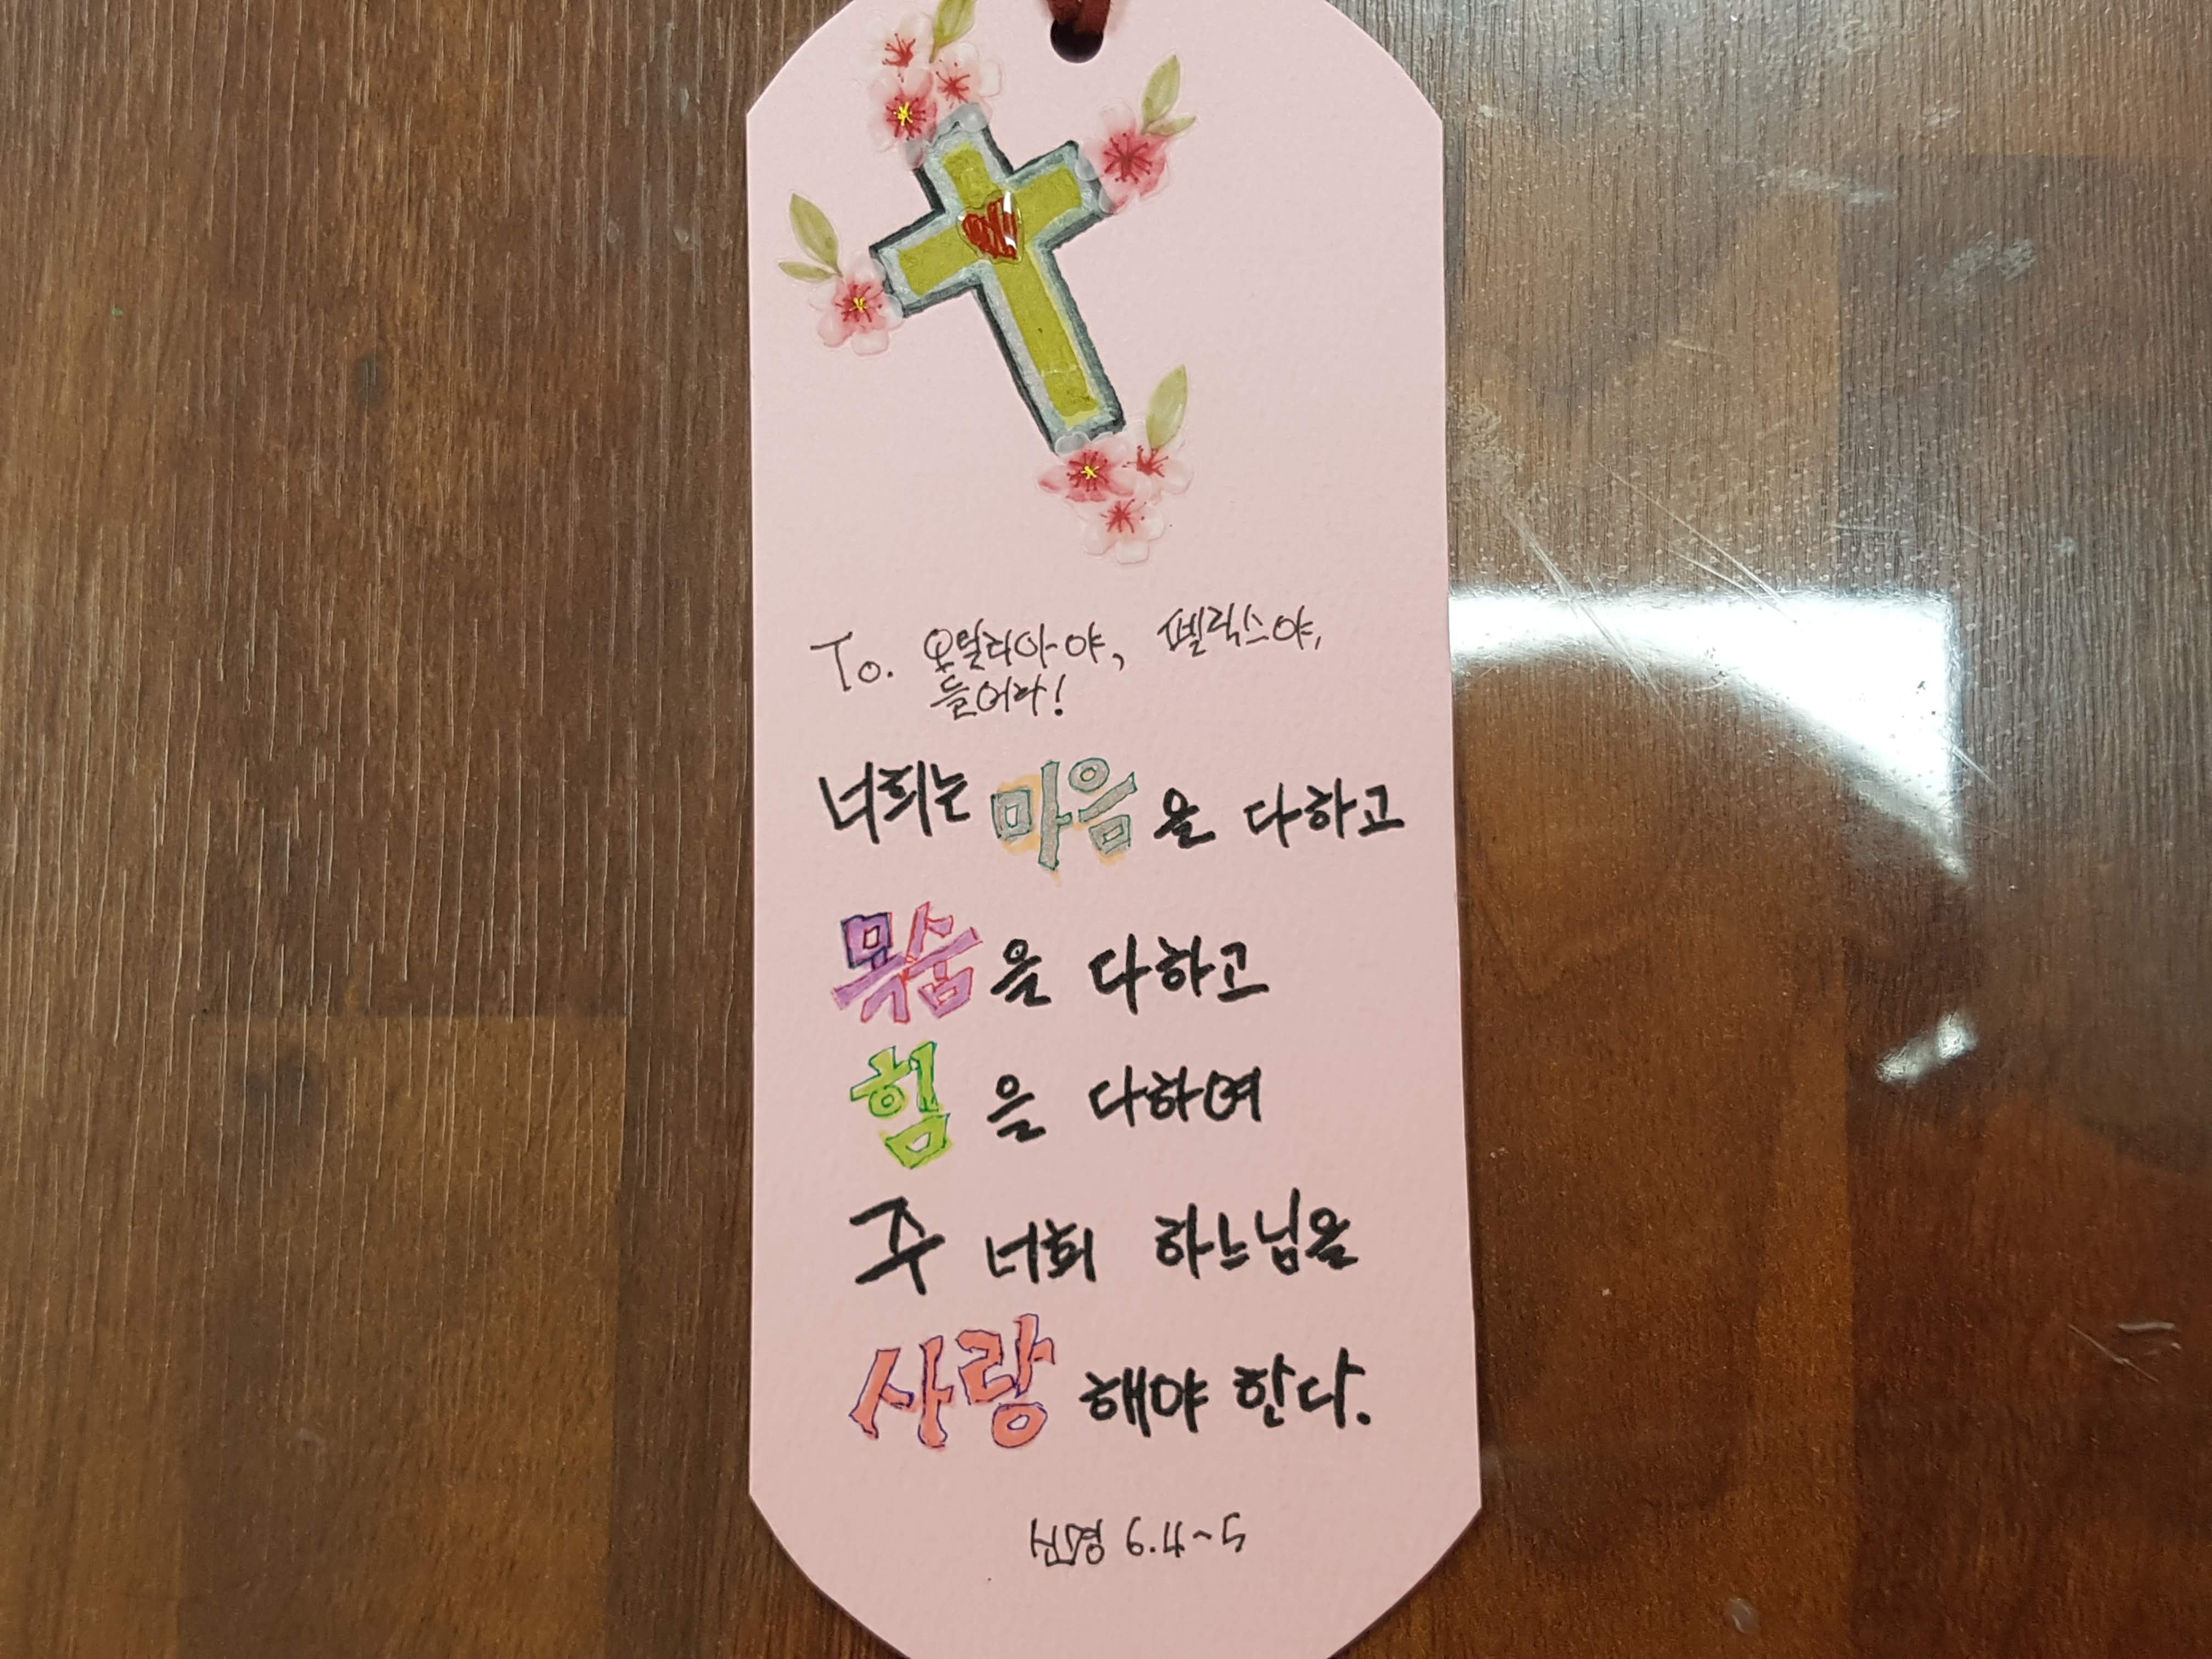 To. 오틸리아야, 펠릭스야,
들어라!
너희는 마음을 다하고
목숨을 다하고
힘을 다하여
주 너희 하느님을
사랑해야 한다.
신명 6.4~5